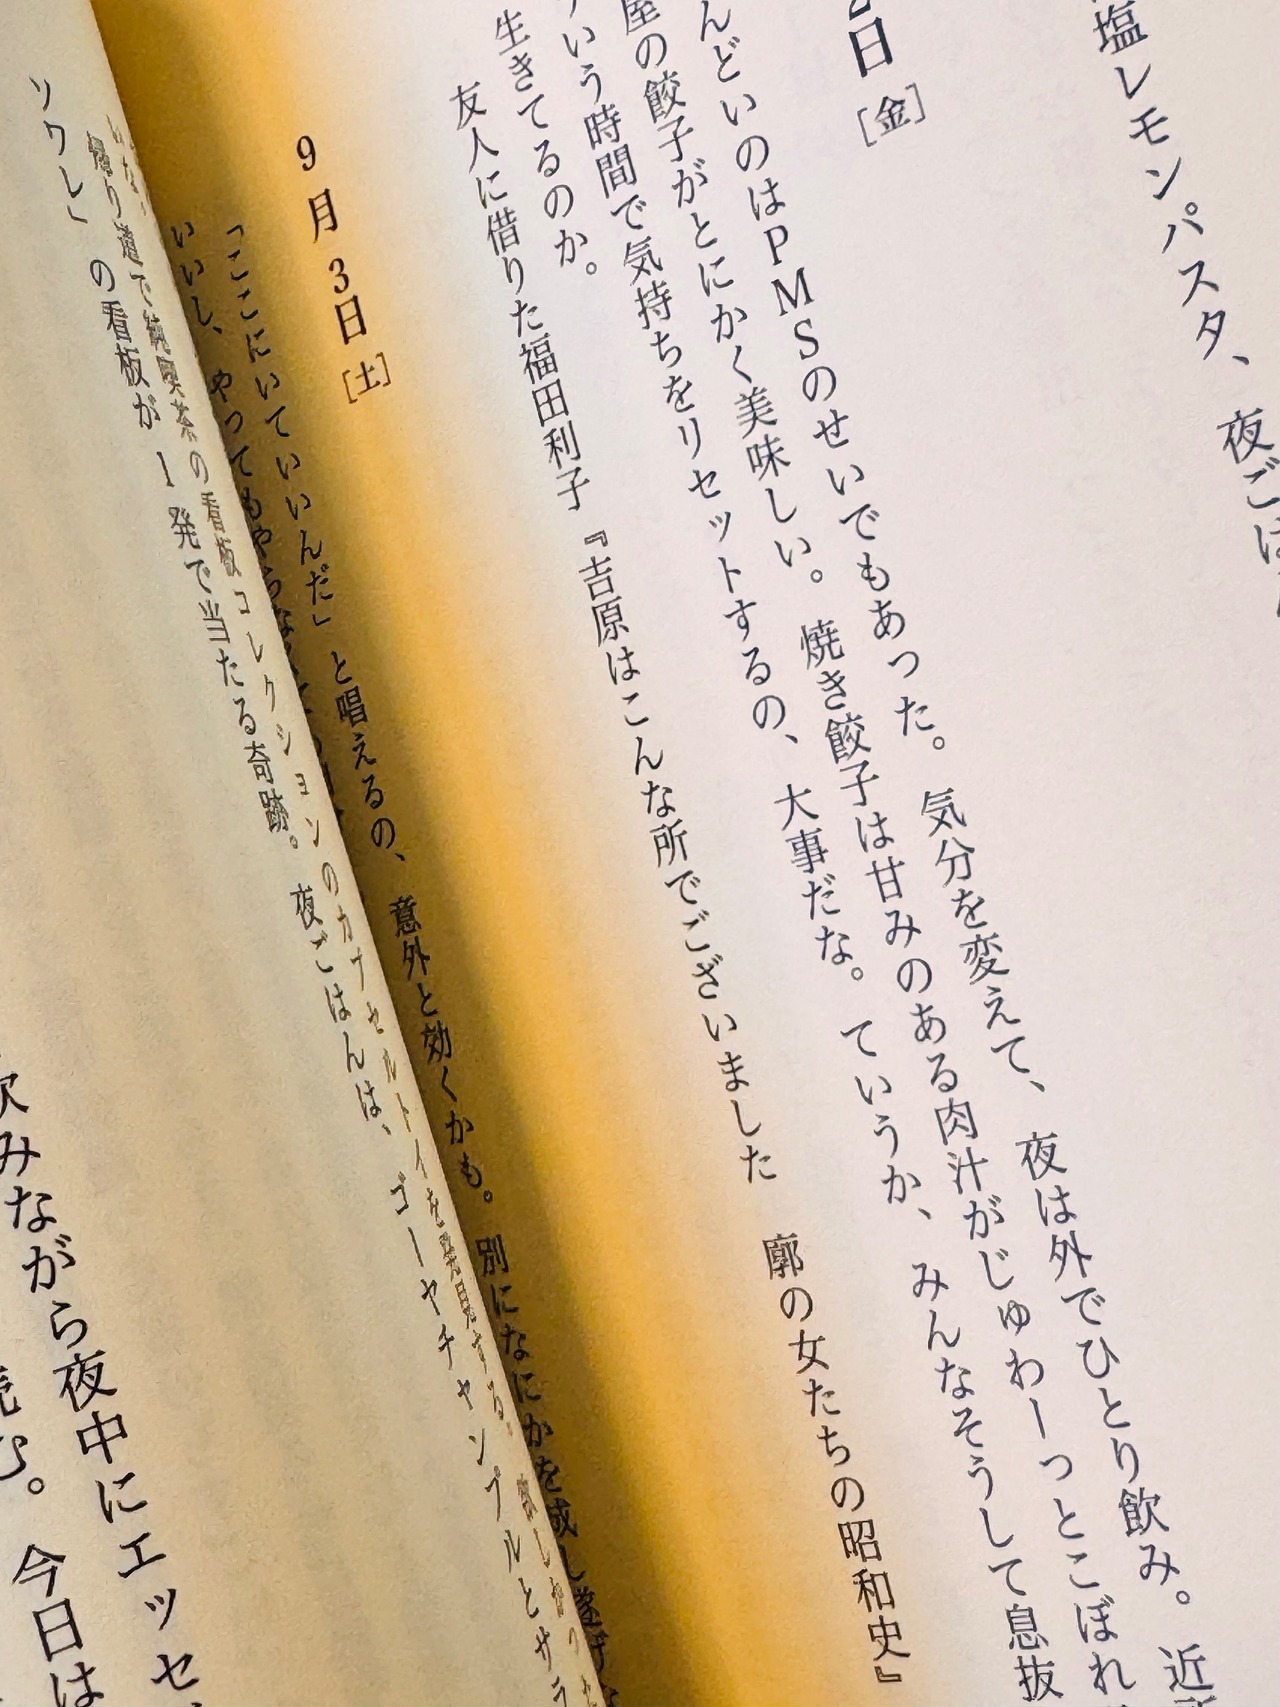 塩レモンパスタ、夜ごは
2日［金］
んどいのはＰＭＳのせいでもあった。気分を変えて、夜は外でひとり飲み。近
屋の餃子がとにかく美味しい。焼き餃子は甘みのある肉汁がじゅわーっとこぼれ
いう時間で気持ちをリセットするの、大事だな。ていうか、みんなそうして息抜
生きてるのか。
友人に借りた福田利子『吉原はこんな所でございました　廓の女たちの昭和史』
9月3日［土］
「ここにいていいんだ」と唱えるの、意外と効くかも。別になにかを成し遂げ
いいし、やってもやらな
帰り道で純喫茶の看板コレクションのカプセルトイを発見する。
ソワレ」の看板が１発で当たる奇跡。夜ごはんは、ゴーヤチャンプルとサラ
飲みながら夜中にエッセ
読む。今日は